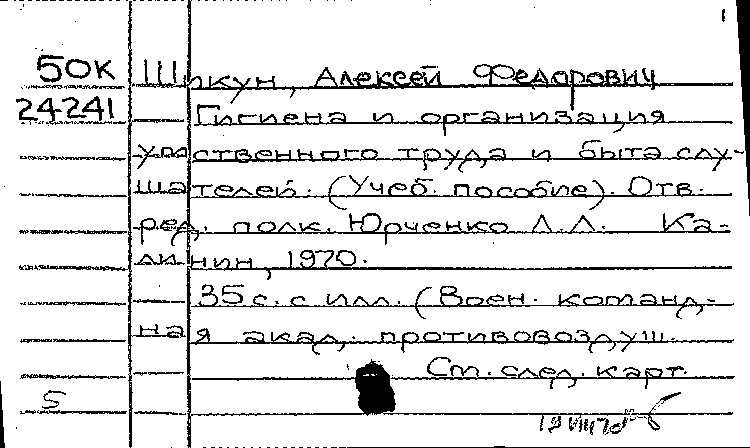 1
50К Шикун, Алексей Федорович
24241 Гигиена и организация
умственного труда и быта слу-
шателей. (Учеб. пособие). Отв.
ред. полк. Юрченко Л.Л. Ка-
линин, 1970.
35 с. с илл. (Воен. команд-
ная акад. противовоздуш.
См. след. карт.
5